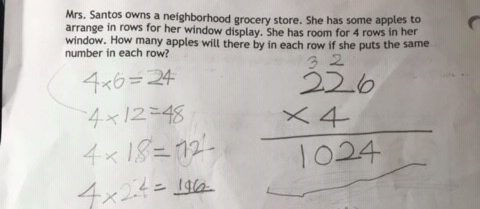 Mrs. Santos owns a neighborhood grocery store. She has some apples to
arrange in rows for her window display. She has room for 4 rows in her
window. How many apples will there by in each row if she puts the same
number in each row?
4×6=24
4×12=48
4×18=
4×24=
3 2
226
×4
1024